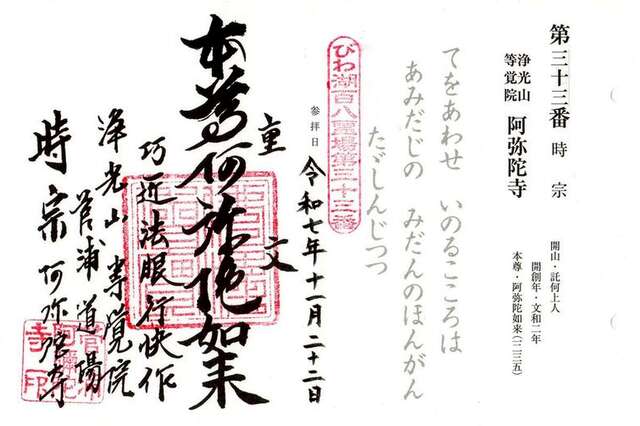 第三十三番 時宗
浄光山
等覚院
阿弥陀寺
開山・託何上人
開創年・文和二年
本尊・阿弥陀如来(一二三五)
てをあわせ いのるこころは
あみだじの みだんのほんがん
たゞしんじつつ
びわ湖百八霊場第三十三番
参拝日
令和七年十一月二十二日
重文
本尊阿弥陀如来
巧匠法眼行快作
浄光山等覚院
菅浦道場
時宗阿弥陀寺